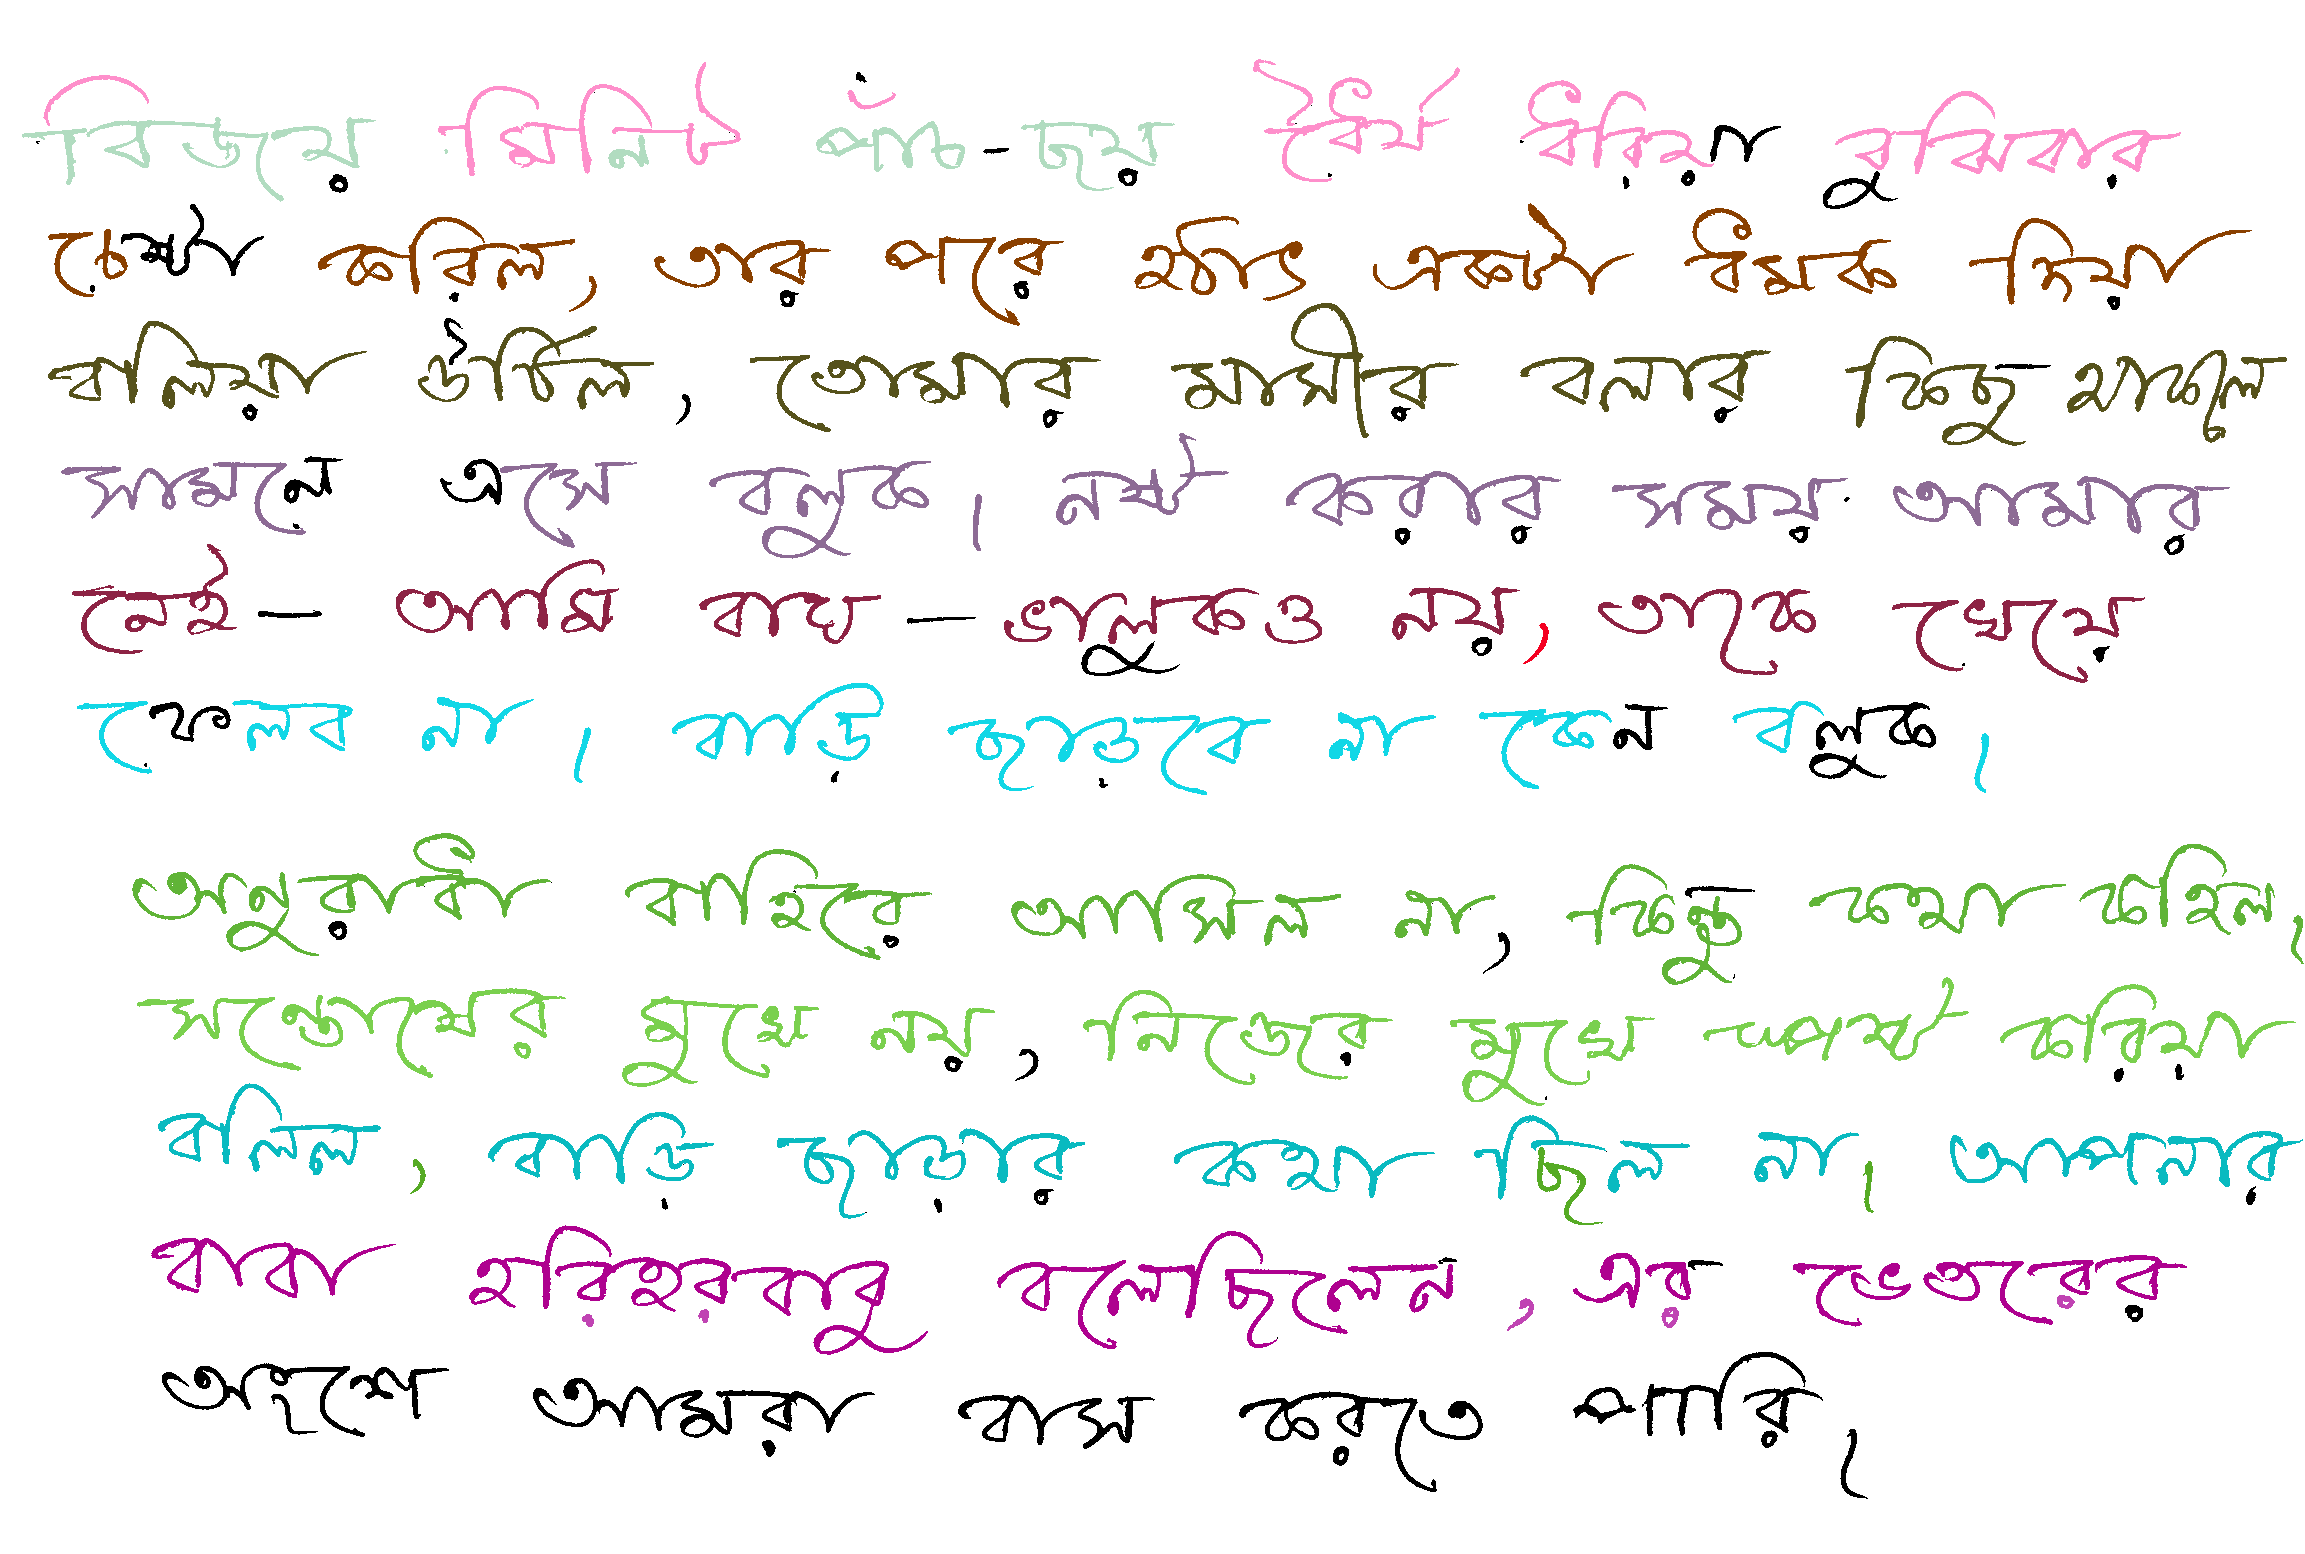 বিজয়ে মিনিট পাঁচ-ছয় ধৈর্য ধরিয়া বুঝিবার
চেষ্টা করিল, তার পরে হঠাৎ একটা ধমক দিয়া
বলিয়া উঠিল, তোমার মাসীর বলার কিছু থাকলে
সামনে এসে বলুক। নষ্ট করার সময় আমার
নেই— আমি বাঘ—ভালুকও নয়, তাকে খেয়ে
ফেলব না। বাড়ি ছাড়বে না কেন বলুক।
অনুরাধা বাহিরে আসিল না, কিন্তু কথা কহিল।
সন্তোষের মুখে নয়, নিজের মুখে স্পষ্ট করিয়া
বলিল, বাড়ি ছাড়ার কথা ছিল না। আপনার
বাবা হরিহরবাবু বলেছিলেন, এর ভেতরের
অংশে আমরা বাস করতে পারি।